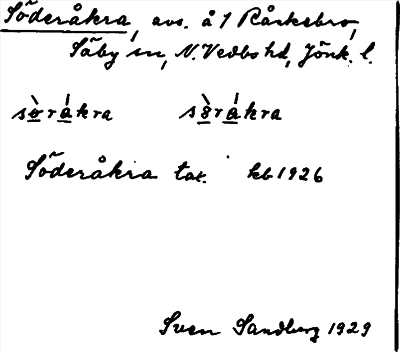 Söderåkra, avs. å 1 Råckebro,
Säby sn, N. Vedbo hd, Jönk. l.
sòrákra sòrákra
Söderåkra tax. kb 1926
Sven Sandberg 1929